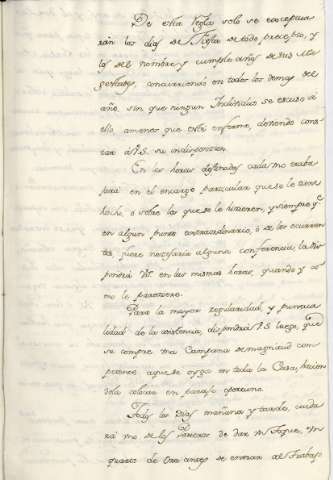 De esta regla solo se exceptua-
rán los dias de Fiesta de todo precepto, y
los del nombre, y cumple años de sus Ma-
gestades, concurriendo en todos los demas del
año, sin que ningun Individuo se escuse à
ello amenos que esté enfermo, deviendo cons-
tar à V.S. su indisposicion.
En las horas destinadas cada uno traba-
jará en el encargo particular que se le tiene
hecho, ò sobre los que se le hicieren, y siempre q.e
en algun punto extraordinario, ò de los ocurren-
tes, fuere necesaria alguna conferencia, la dis-
pondrá V.S. en las mismas horas, quando y co-
mo le pareciere.
Para la mayor regularidad, y puntua-
lidad de la asistencia, dispondrá V.S. luego, que
se compre una Campana de magnitud com-
petente aque se oyga en toda la Casa, hacien-
dola colocar en parage oportuno.
Todos los Dias mañana y tarde, cuida-
rá uno de los Porteros de dar un Toque, un
quarto de Ora antes de entrar al Trabajo